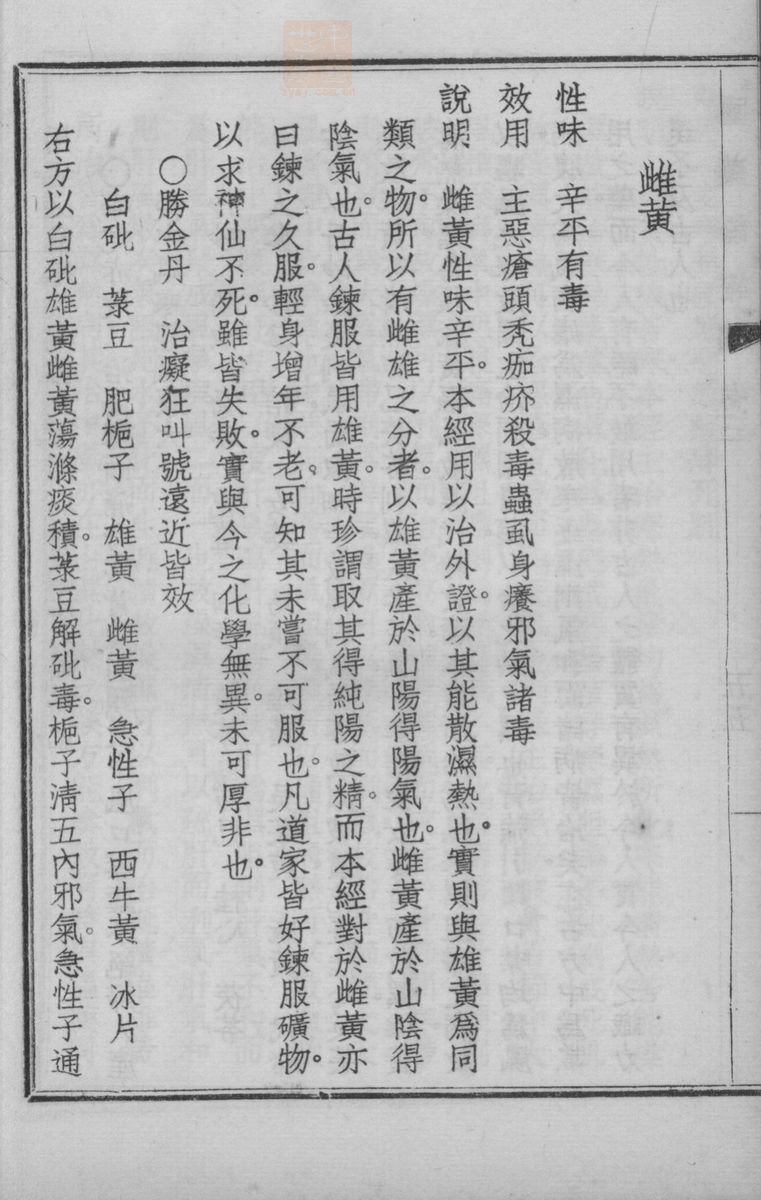 雌黃
性味　辛平有毒
效用　主惡瘡頭禿痂疥殺毒蟲虱身癢邪氣諸毒
說明　雌黃性味辛平。本經用以治外證。以其能散濕熱也。實則與雄黃爲同
類之物。所以有雌雄之分者。以雄黃產於山陽得陽氣也。雌黃產於山陰得
陰氣也。古人鍊服皆用雄黃。時珍謂取其得純陽之精。而本經對於雌黃亦
曰鍊之久服。輕身增年不老。可知其未嘗不可服也。凡道家皆好鍊服礦物。
以求神仙不死。雖皆失敗。實與今之化學無異。未可厚非也。
〇勝金丹　治癡狂叫號遠近皆效
〇白砒　菉豆　肥梔子　雄黃　雌黃　急性子　西牛黃　冰片
右方以白砒雄黃雌黃蕩滌痰積。菉豆解砒毒。梔子淸五內邪氣。急性子通